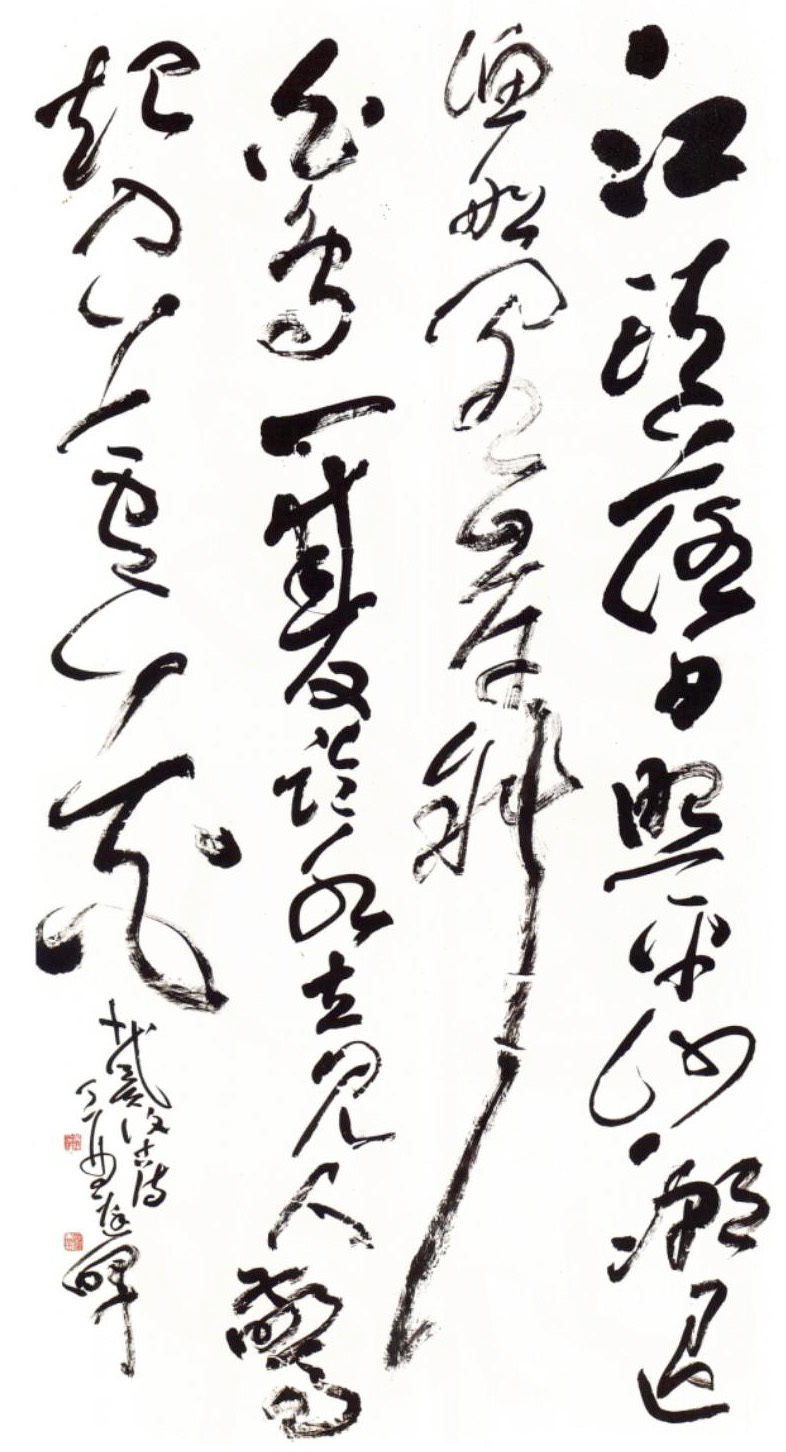 江頭落日照平沙潮退
漁船閣岸斜
白鳥一雙臨水立見人驚
起入蘆花
戴復古詩